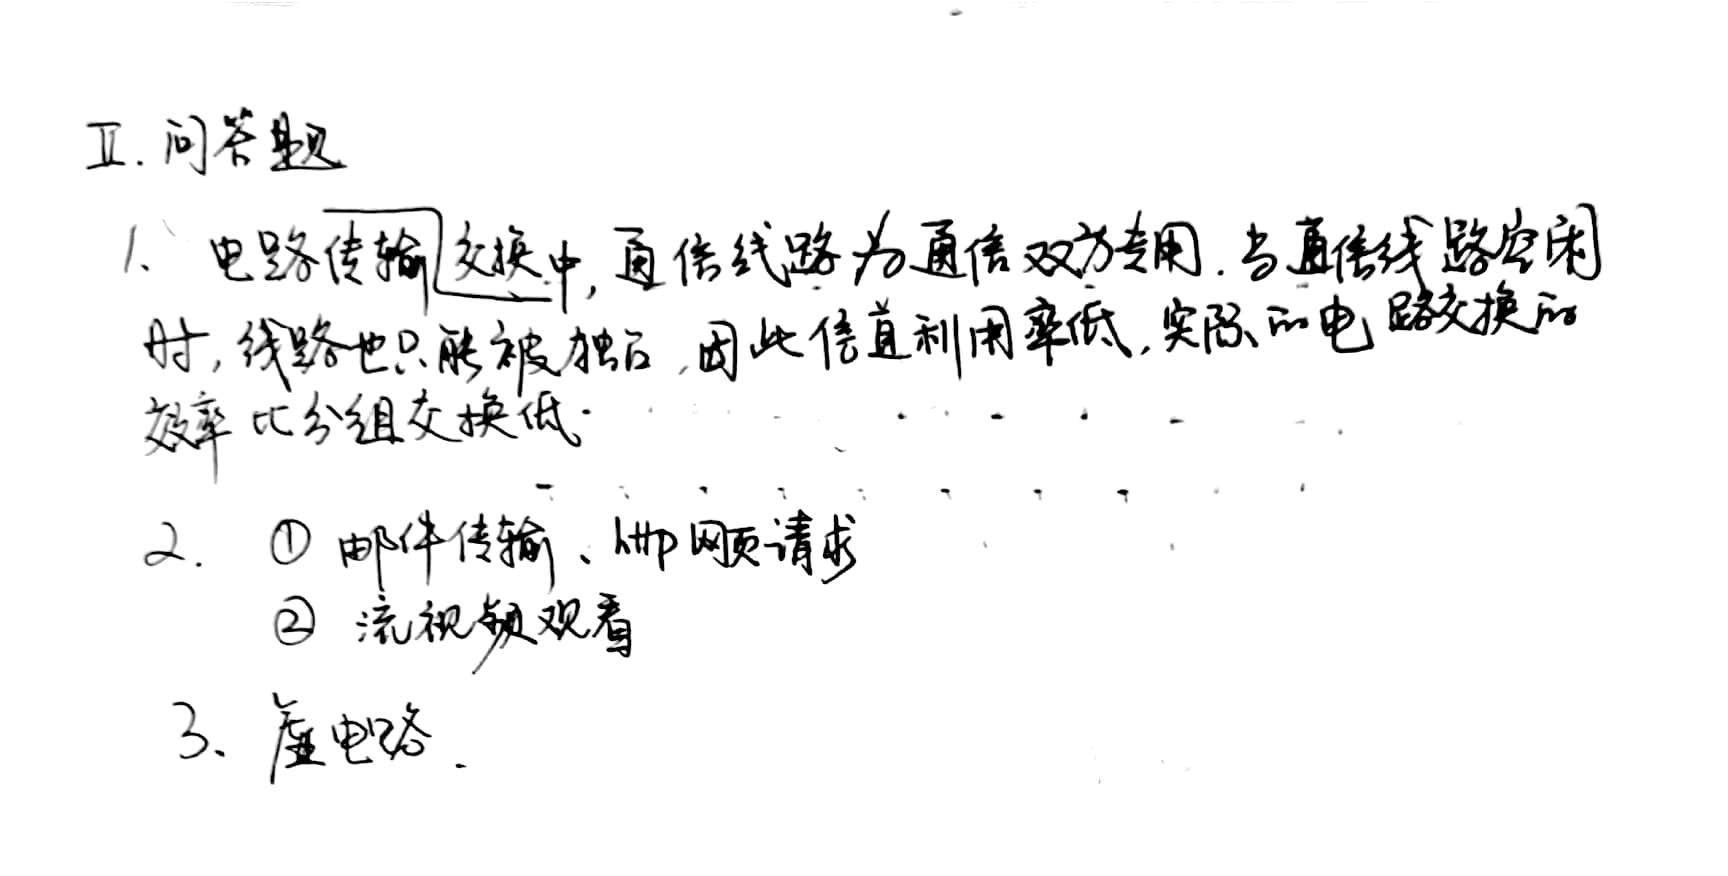 II. 问答题
1、电路传输交换中，通信线路为通信双方专用．当通信线路空闲
时，线路也只能被独占，因此信道利用率低，实际的电路交换的
效率比分组交换低．
2. ① 邮件传输、http网页请求
② 流视频观看
3、虚电路．